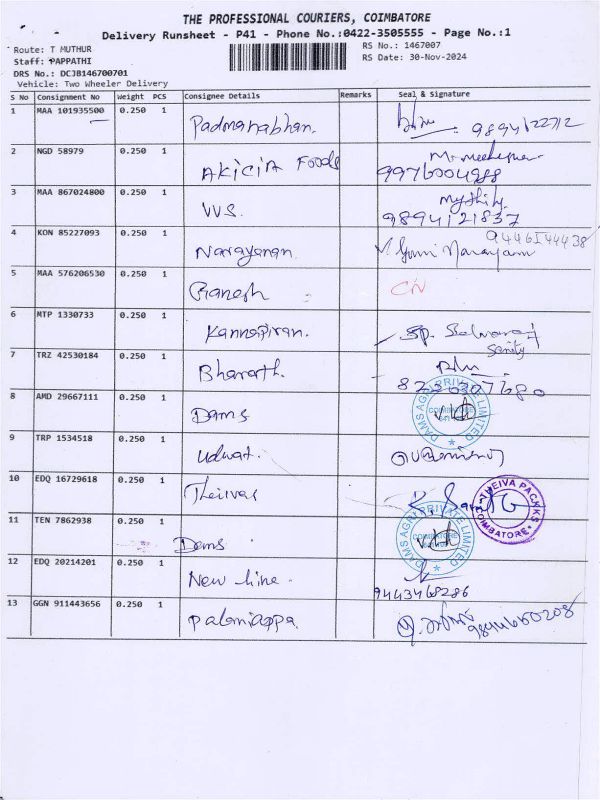 THE PROFESSIONAL COURIERS, COIMBATORE
Delivery Runsheet - P41 - Phone No.:0422-3505555 - Page No.:1
Route: T MUTHUR
RS No.: 1467007
Staff: PAPPATHI
RS Date: 30-Nov-2024
DRS No.: DCJB146700701
Vehicle: Two Wheeler Delivery
S No Consignment No Weight PCS Consignee Details Remarks Seal & Signature
1 MAA 101935500 0.250 1 Padmanabhan.
2 NGD 58979 0.250 1 AKICIA Foods
9976004988
3 MAA 867024800 0.250 1 VVS.
9894121837
4 KON 85227093 0.250 1 Narayanan.
5 MAA 576206530 0.250 1 Ganesh
6 MTP 1330733 0.250 1 Kannapiran.
7 TRZ 42530184 0.250 1 Bharath.
8 AMD 29667111 0.250 1 Dams DAMS AGRI PRIVATE LIMITED COIMBATORE
9 TRP 1534518 0.250 1 Udwat.
10 EDQ 16729618 0.250 1 Theivas THEIVA PACKKS COIMBATORE
11 TEN 7862938 0.250 1 Dams DAMS AGRI PRIVATE LIMITED COIMBATORE
12 EDQ 20214201 0.250 1 New line.
9443468286
13 GGN 911443656 0.250 1 Palaniappa